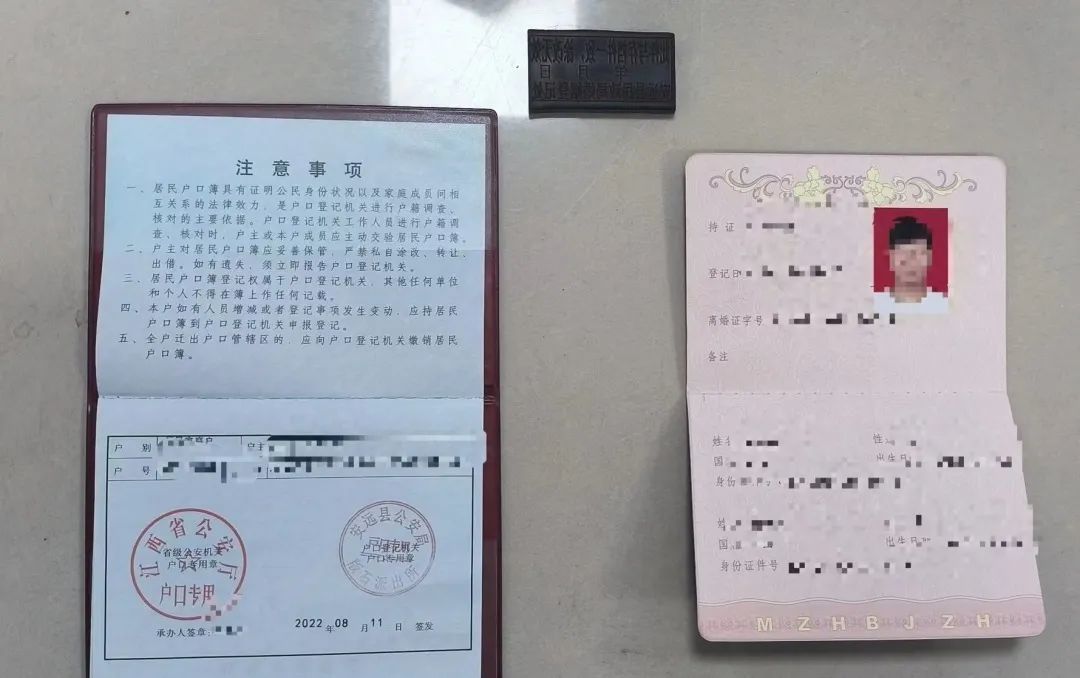 注意事项
一、居民户口簿具有证明公民身份状况以及家庭成员间相
互关系的法律效力，是户口登记机关进行户籍调查、
核对的主要依据。户口登记机关工作人员进行户籍调
查、核对时，户主或本户成员应主动交验居民户口簿。
二、户主对居民户口簿应妥善保管，严禁私自涂改、转让、
出借。如有遗失，须立即报告户口登记机关。
三、居民户口簿登记权属于户口登记机关，其他任何单位
和个人不得在簿上作任何记载。
四、本户如有人员增减或者登记事项发生变动，应持居民
户口簿到户口登记机关申报登记。
五、全户迁出户口管辖区的，应向户口登记机关缴销居民
户口簿。
户 别
户主
户 号
江西省公安厅
省级公安机关
户口专用章
户口专用
安远县公安局
户口登记机关
户口专用章
版石派出所
承办人签章：
2022 年 08 月 11 日 签发
年 月 日
持证
登记日
离婚证字号
备注
姓名
性
国
出生日
身份
姓
国
出生日
身份证件号
MZHBJZH